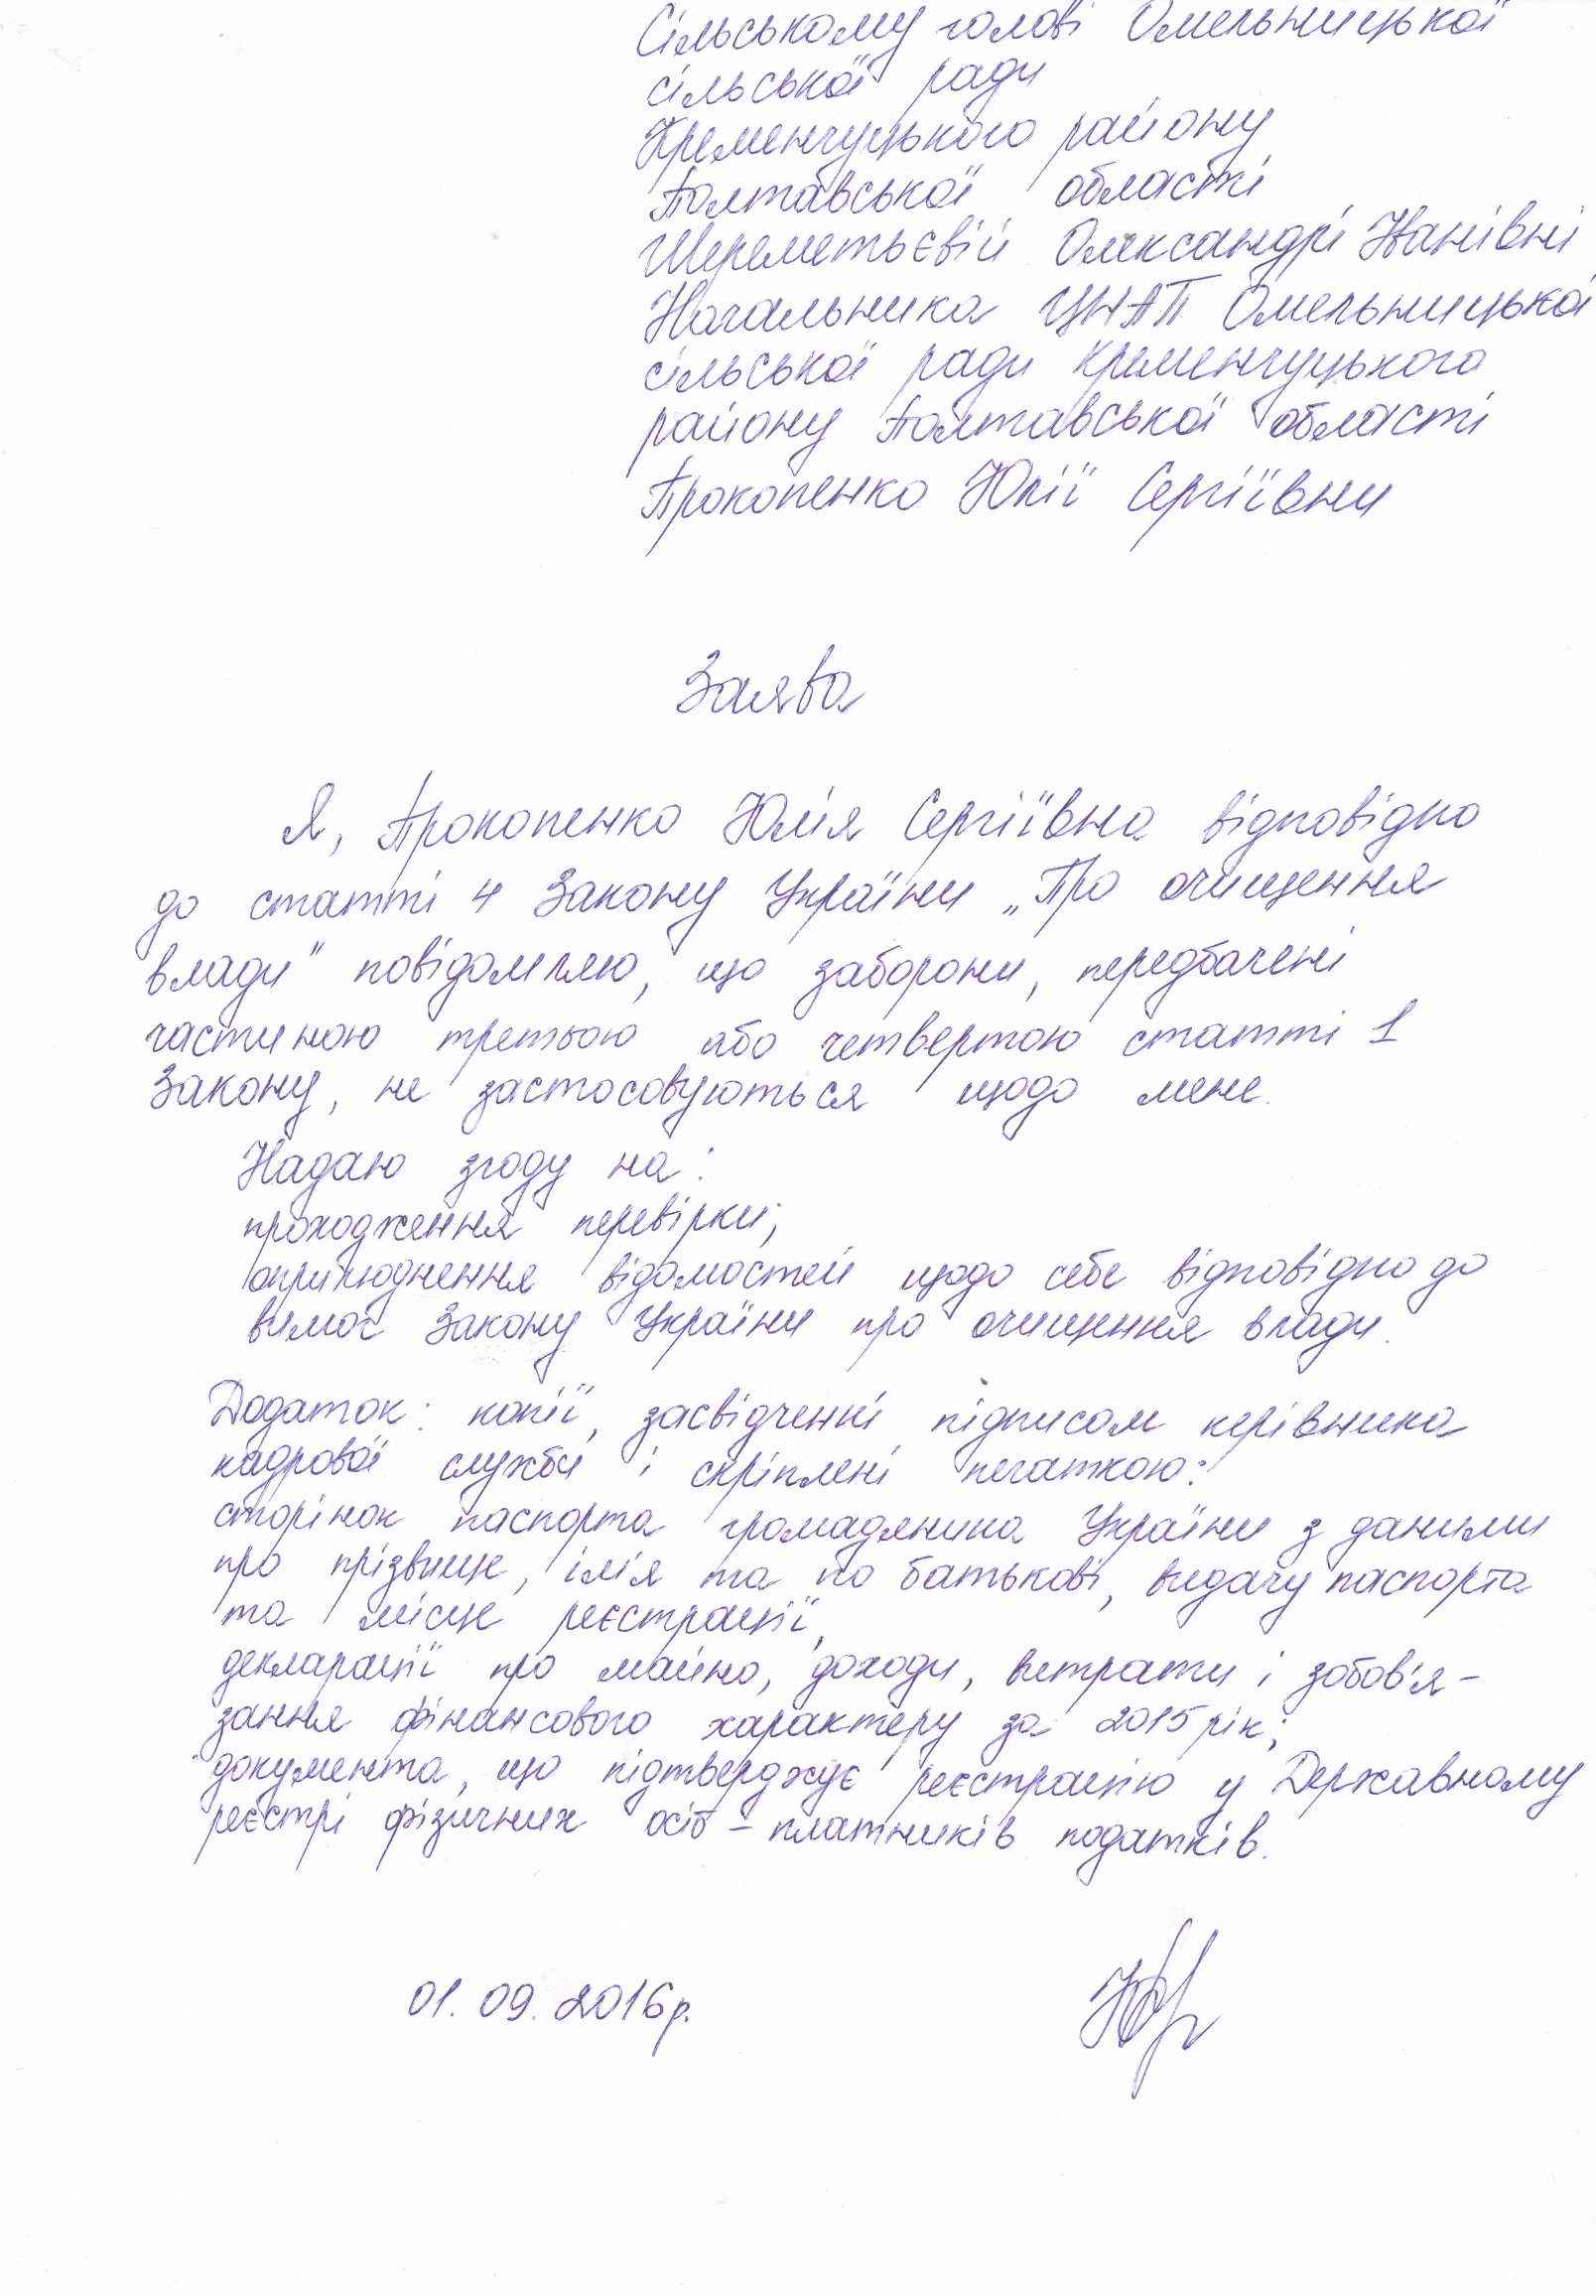 Сільському голові Омельницької
сільської ради
Кременчуцького району
Полтавської області
Шереметьєвій Олександрі Іванівні
Начальника ЦНАП Омельницької
сільської ради Кременчуцького
району Полтавської області
Прокопенко Юлії Сергіївни
Заява
Я, Прокопенко Юлія Сергіївна відповідно
до статті 4 Закону України „Про очищення
влади" повідомляю, що заборони, передбачені
частиною третьою або четвертою статті 1
Закону, не застосовуються щодо мене.
Надаю згоду на:
проходження перевірки;
оприлюднення відомостей щодо себе відповідно до
вимог Закону України про очищення влади.
Додаток: копії, засвідченні підписом керівника
кадрової служби і скріплені печаткою:
сторінок паспорта громадянина України з даними
про прізвище, ім'я та по батькові, видачу паспорта
та місце реєстрації,
декларації про майно, доходи, витрати і зобов'я-
зання фінансового характеру за 2015 рік;
документа, що підтверджує реєстрацію у Державному
реєстрі фізичних осіб – платників податків.
01.09.2016р.